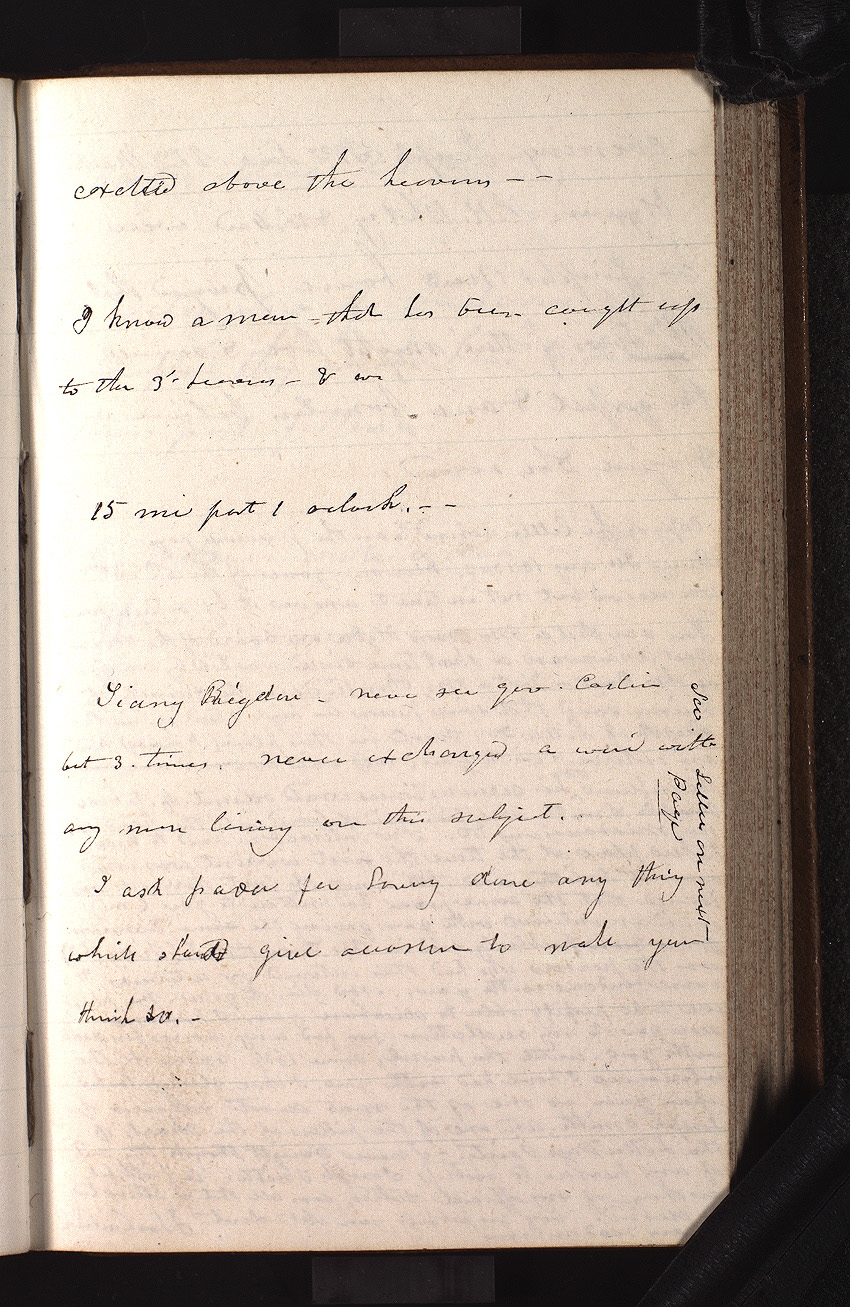 exalted above the heavens - -
I know a man that has been caught up
to the 3d heavens - & we
15 mi past 1 oclock. - -
Rigdon - never see gov. Carlin
but 3. times. never exchanged a word with
any man living on this subject.
I ask pardon for having done any thing
which should give occasion to make you
think so. -
See Letter on next
Page